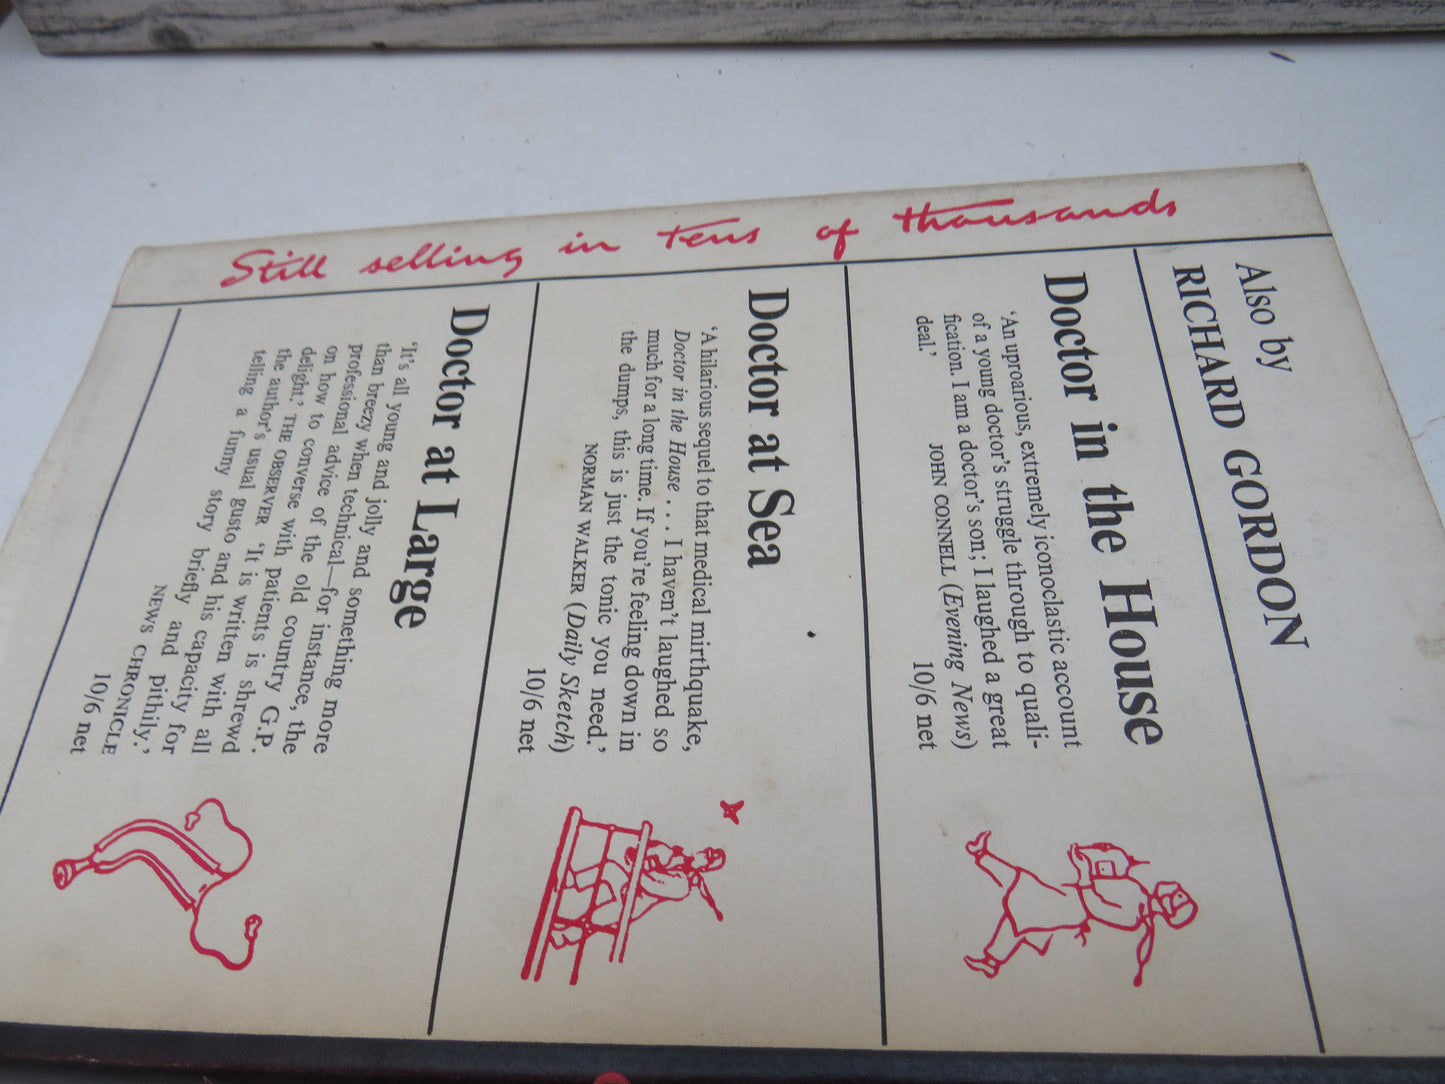 Also by
RICHARD GORDON
Doctor in the House
‘An uproarious, extremely iconoclastic account
of a young doctor’s struggle through to quali-
fication. I am a doctor’s son; I laughed a great
deal.’
JOHN CONNELL (Evening News)
10/6 net
Doctor at Sea
‘A hilarious sequel to that medical mirthquake,
Doctor in the House . . . I haven’t laughed so
much for a long time. If you’re feeling down in
the dumps, this is just the tonic you need.’
NORMAN WALKER (Daily Sketch)
10/6 net
Doctor at Large
‘It’s all young and jolly and something more
than breezy when technical—for instance, the
professional advice of the old country G.P.
on how to converse with patients is shrewd
delight.’ THE OBSERVER ‘It is written with all
the author’s usual gusto and his capacity for
telling a funny story briefly and pithily.’
NEWS CHRONICLE
10/6 net
Still selling in tens of thousands